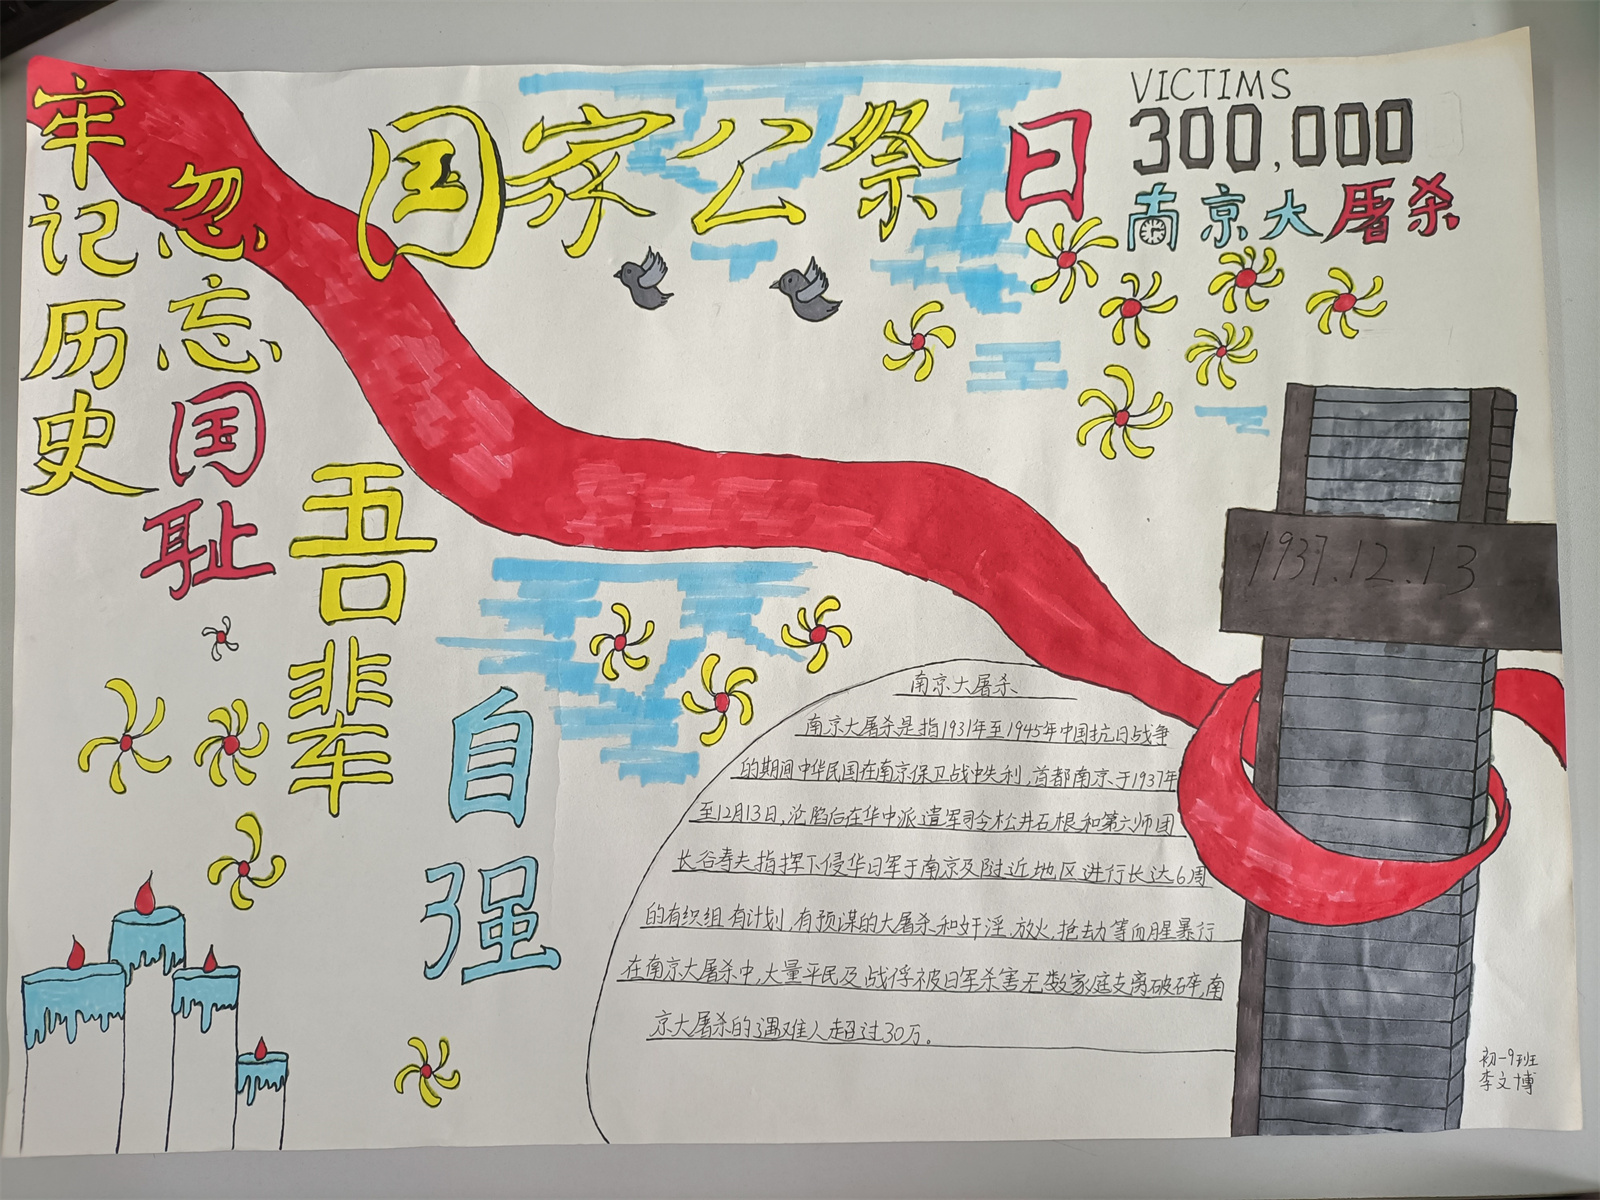 牢记历史
勿忘
国耻
吾辈
自强
国家公祭日
VICTIMS
300,000
南京大屠杀
1937.12.13
南京大屠杀
南京大屠杀是指1931年至1945年中国抗日战争
的期间中华民国在南京保卫战中失利,首都南京于1937年
至12月13日,沦陷后在华中派遣军司令松井石根和第六师团
长谷寿夫指挥下侵华日军于南京及附近地区进行长达6周
的有织组.有计划.有预谋的大屠杀和奸淫.放火.抢劫等血腥暴行
在南京大屠杀中,大量平民及战俘被日军杀害无数家庭支离破碎,南
京大屠杀的遇难人超过30万。
初一9班
李文博